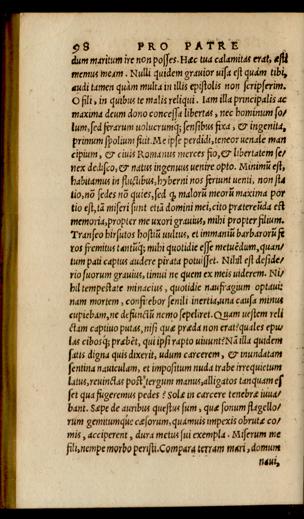 98 PRO PATRE
dum maritum ire non posses. Hæc tua calamitas erat, æsti
memus meam. Nulli quidem grauior uisa est quàm tibi,
audi tamen quàm multa in illis epistolis non scripserim.
O fili, in quibus te malis reliqui. Iam illa principalis ac
maxima deum dono concessa libertas, nec hominum so/
lum, sed ferarum uolucrumq; sensibus fixa, & ingenita,
primum spolium fuit. Me ipse perdidi, teneor uenale man
cipium, & ciuis Romanus merces fio, & libertatem se/
nex dedisco, & natus ingenuus uenire opto. Minimũ est,
habitamus in fluctibus, hyberni nos ferunt uenti, non sta
tio, nõ sedes nõ quies, sed q, malorũ meorũ maxima por
tio est, tã miseri sunt etiã domini mei, cito prætereũda est
memoria, propter me uxori grauius, mihi propter filium.
Transeo hirsutos hostiũ uultus, et immaniũ barbarorũ fe
ros fremitus tantũq; mihi quotidie esse metuẽdum, quan/
tum pati captus audere pirata potuisset. Nihil est deside/
rio suorum grauius, timui ne quem ex meis uiderem. Ni/
hil tempestate minacius, quotidie naufragium optaui:
nam mortem, confitebor senili inertia, una causa minus
cupiebam, ne defunctũ nemo sepeliret. Quam uestem reli
ctam captiuo putas, nisi quæ præda non erat? quales epu
las cibosq; præbẽt, qui ipsi rapto uiuunt? Nã illa quidem
satis digna quis dixerit, udum carcerem, & inundatam
sentina nauculam, et impositum nuda trabe irrequietum
latus, reuinctas post tergum manus, alligatos tanquam es
set qua fugeremus pedes? Sola in carcere tenebræ iuua/
bant. Sæpe de auribus questus sum, quæ sonum flagello/
rum gemitumque cæsorum, quamuis impexis obrutæ co/
mis, acciperent, dura metus sui exempla. Miserum me
fili, nempe morbo peristi. Compara terram mari, domum
naui,